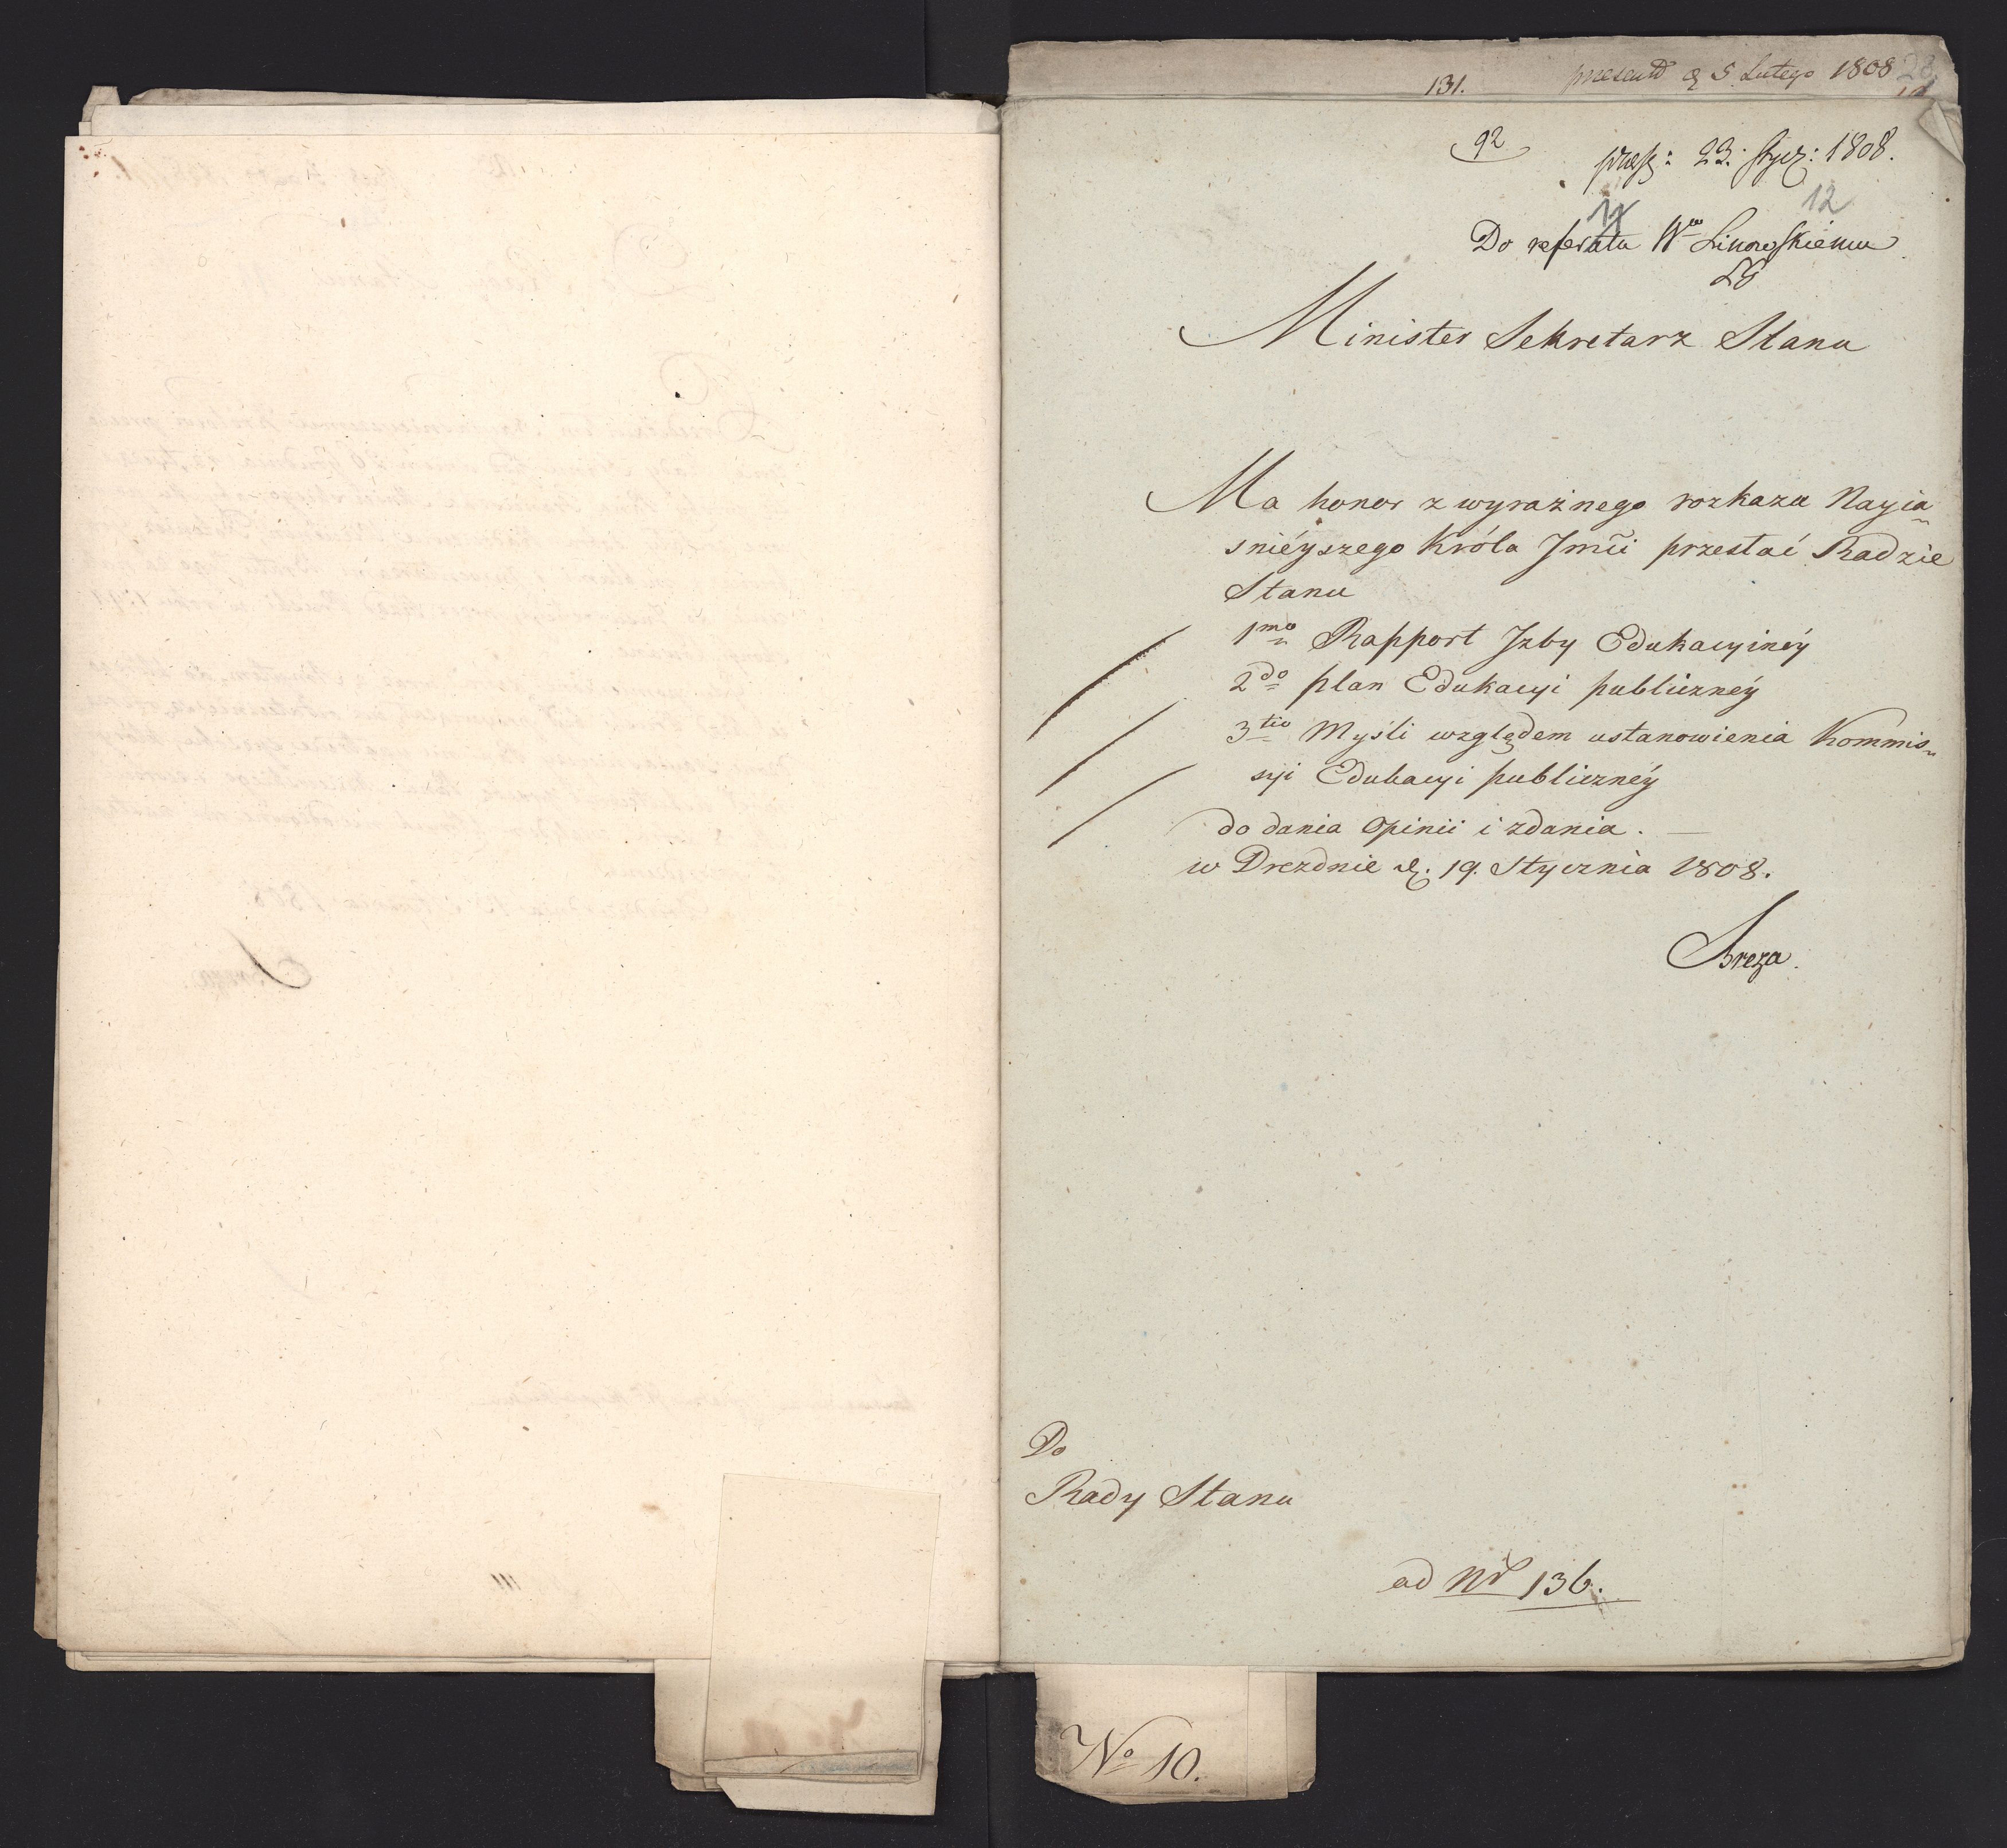 131. 5 Lutego 1808
92
23. Stycz: 1808.
12
Do referatu Wu Linowskiemu
Minister Sekretarz Stanu
Ma honor z wyraźnego rozkazu Nayia
sniéyszego Króla Jmći przesłać Radzie
Stanu
1mo Rapport Jzby Edukacyinéy
2do plan Edukacyi publicznéy
3tio Myśli względem ustanowienia Kommis
syi Edukacyi publicznéy
do dania Opinii i zdania. —
w Dreznie d. 19. Stycznia 1808.
Breza.
Do
Rady Stanu
ad Nr 136.
No 10.